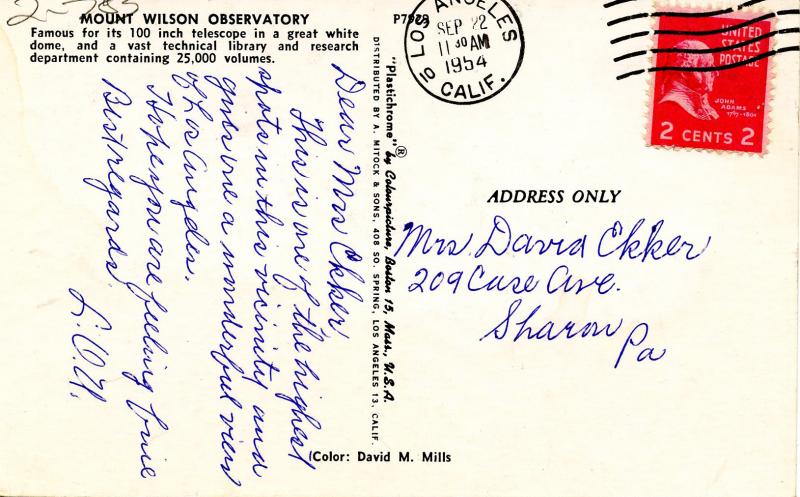 2-785
MOUNT WILSON OBSERVATORY
Famous for its 100 inch telescope in a great white
dome, and a vast technical library and research
department containing 25,000 volumes.
Dear Mrs Ekker
This is one of the highest
spots in this vicinity and
gives one a wonderful view
of Los Angeles.
Hope you are feeling fine
Best regards
"Plastichrome"® by Colourpicture, Boston 15, Mass., U.S.A.
DISTRIBUTED BY A. MITOCK & SONS, 408 SO. SPRING, LOS ANGELES 13, CALIF.
Color: David M. Mills
LOS ANGELES
SEP 22
11 30 AM
1954
10 CALIF.
UNITED
STATES
POSTAGE
JOHN
ADAMS
1797-1801
2 CENTS 2
ADDRESS ONLY
Mrs. David Ekker
209 Case Ave.
Sharon
Pa